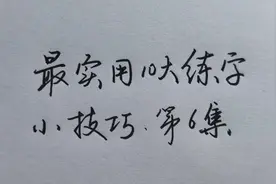 最实用10大练字
小技巧.第6集